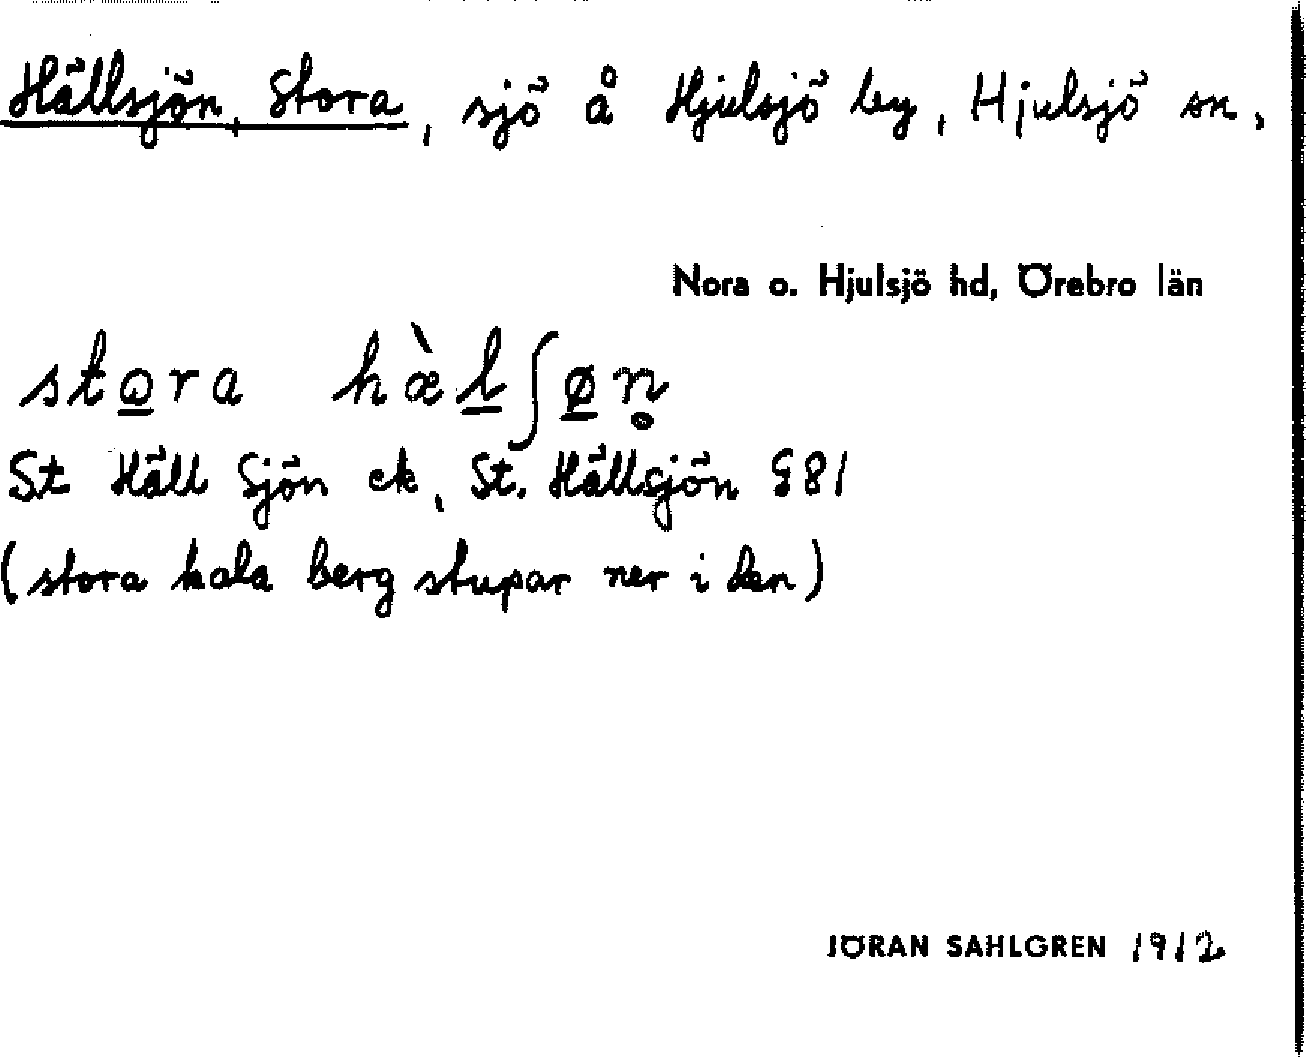 Hällsjön, Stora, sjö å Hjulsjö by, Hjulsjö sn,
Nora o. Hjulsjö hd, Örebro län
stora hæ̀lʃøn̥
St Häll Sjön ek, St. Hällsjön G81
(stora kala berg stupar ner i den)
JÖRAN SAHLGREN 1912